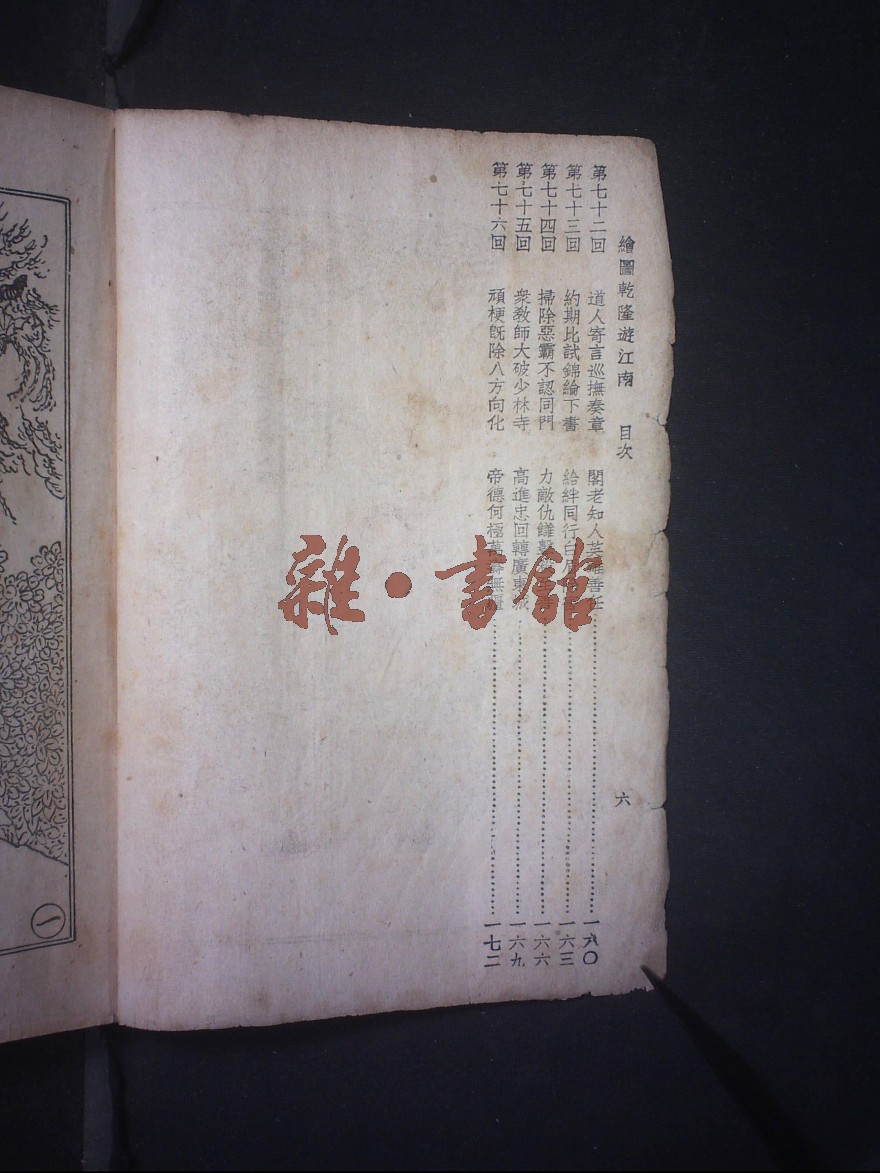 繪圖乾隆遊江南 目次 六
第七十二回 道人寄言巡撫奏章 閣老知人英雄善任 一六〇
第七十三回 約期比試錦綸下書 給絆同行白眉 一六三
第七十四回 掃除惡霸不認同門 力敵仇讎 一六六
第七十五回 衆敎師大破少林寺 高進忠回轉廣東城 一六九
第七十六回 頑梗旣除八方向化 帝德何極萬壽無疆 一七二
雜·書館
一